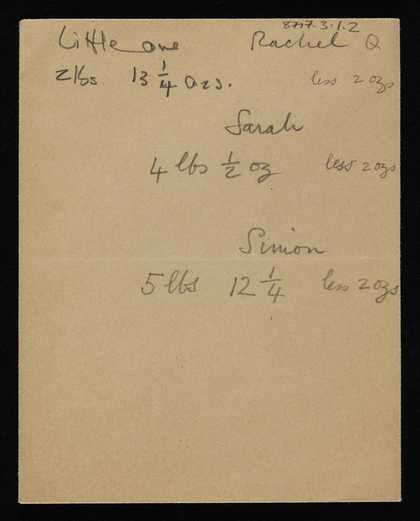 8717.3.1.2
Little one Rachel Q
2lbs 13 1/4 ozs. less 2 ozs
Sarah
4 lbs 1/2 oz less 2 ozs
Simon
5 lbs 12 1/4 less 2 ozs